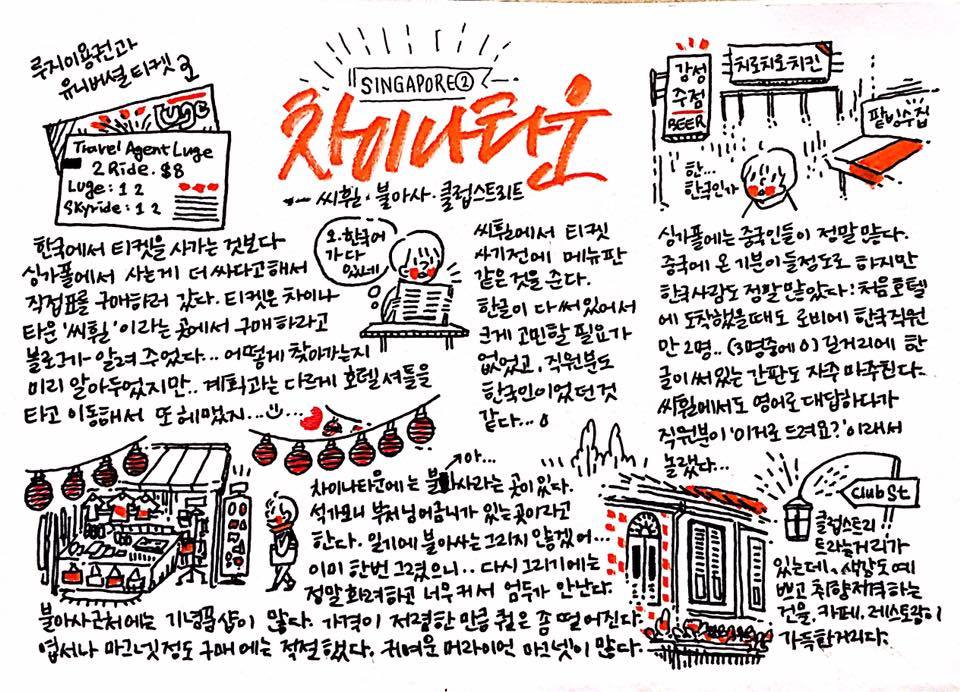 루지이용권과
유니버셜티켓
Travel Agent Luge
2 Ride. $8
Luge : 1 2
Skyride : 1 2
SINGAPORE②
차이나타운
씨휠 · 불아사 · 클럽스트리트
한국에서 티켓을 사가는 것보다
싱가폴에서 사는게 더 싸다고해서
직접표를 구매하러 갔다. 티켓은 차이나
타운 '씨휠'이라는 곳에서 구매하라고
블로거가 알려 주었다... 어떻게 찾아가는지
미리 알아두었지만.. 계획과는 다르게 호텔셔틀을
타고 이동해서 또 헤맸지...
오.한국어
가 다
있네
씨휠에서 티켓
사기전에 메뉴판
같은것을 준다.
한글이 다 써있어서
크게 고민할 필요가
없었고, 직원분도
한국인이었던 것
같다...
감성
주점
BEER
치로치오치킨
팥빙수집
한...
한국인가
싱가폴에는 중국인들이 정말 많다.
중국에 온 기분이 들정도로 하지만
한국사람도 정말 많았다! 처음 호텔
에 도착했을때도 로비에 한국직원
만 2명.. (3명중에 0) 길거리에 한
글이 써있는 간판도 자주 마주친다.
씨휠에서도 영어로 대답하다가
직원분이 '이거로 드려요?' 이래서
놀랬다...
아...
차이나타운에는 불사라는 곳이 있다.
석가모니 부처님 어금니가 있는 곳이라고
한다. 일기에 불아사는 그리지 않겠어...
이미 한번 그렸으니.. 다시 그리기에는
정말 화려하고 너무 커서 엄두가 안난다.
불아사근처에는 기념품샵이 많다. 가격이 저렴한 만큼 퀄은 좀 떨어진다.
엽서나 마그넷정도 구매에는 적절했다. 귀여운 머라이언 마그넷이 많다.
Club St
클럽스트리
트라는거리가
있는데, 색감도 예
쁘고 취향저격하는
건물, 카페, 레스토랑이
가득한거리다.